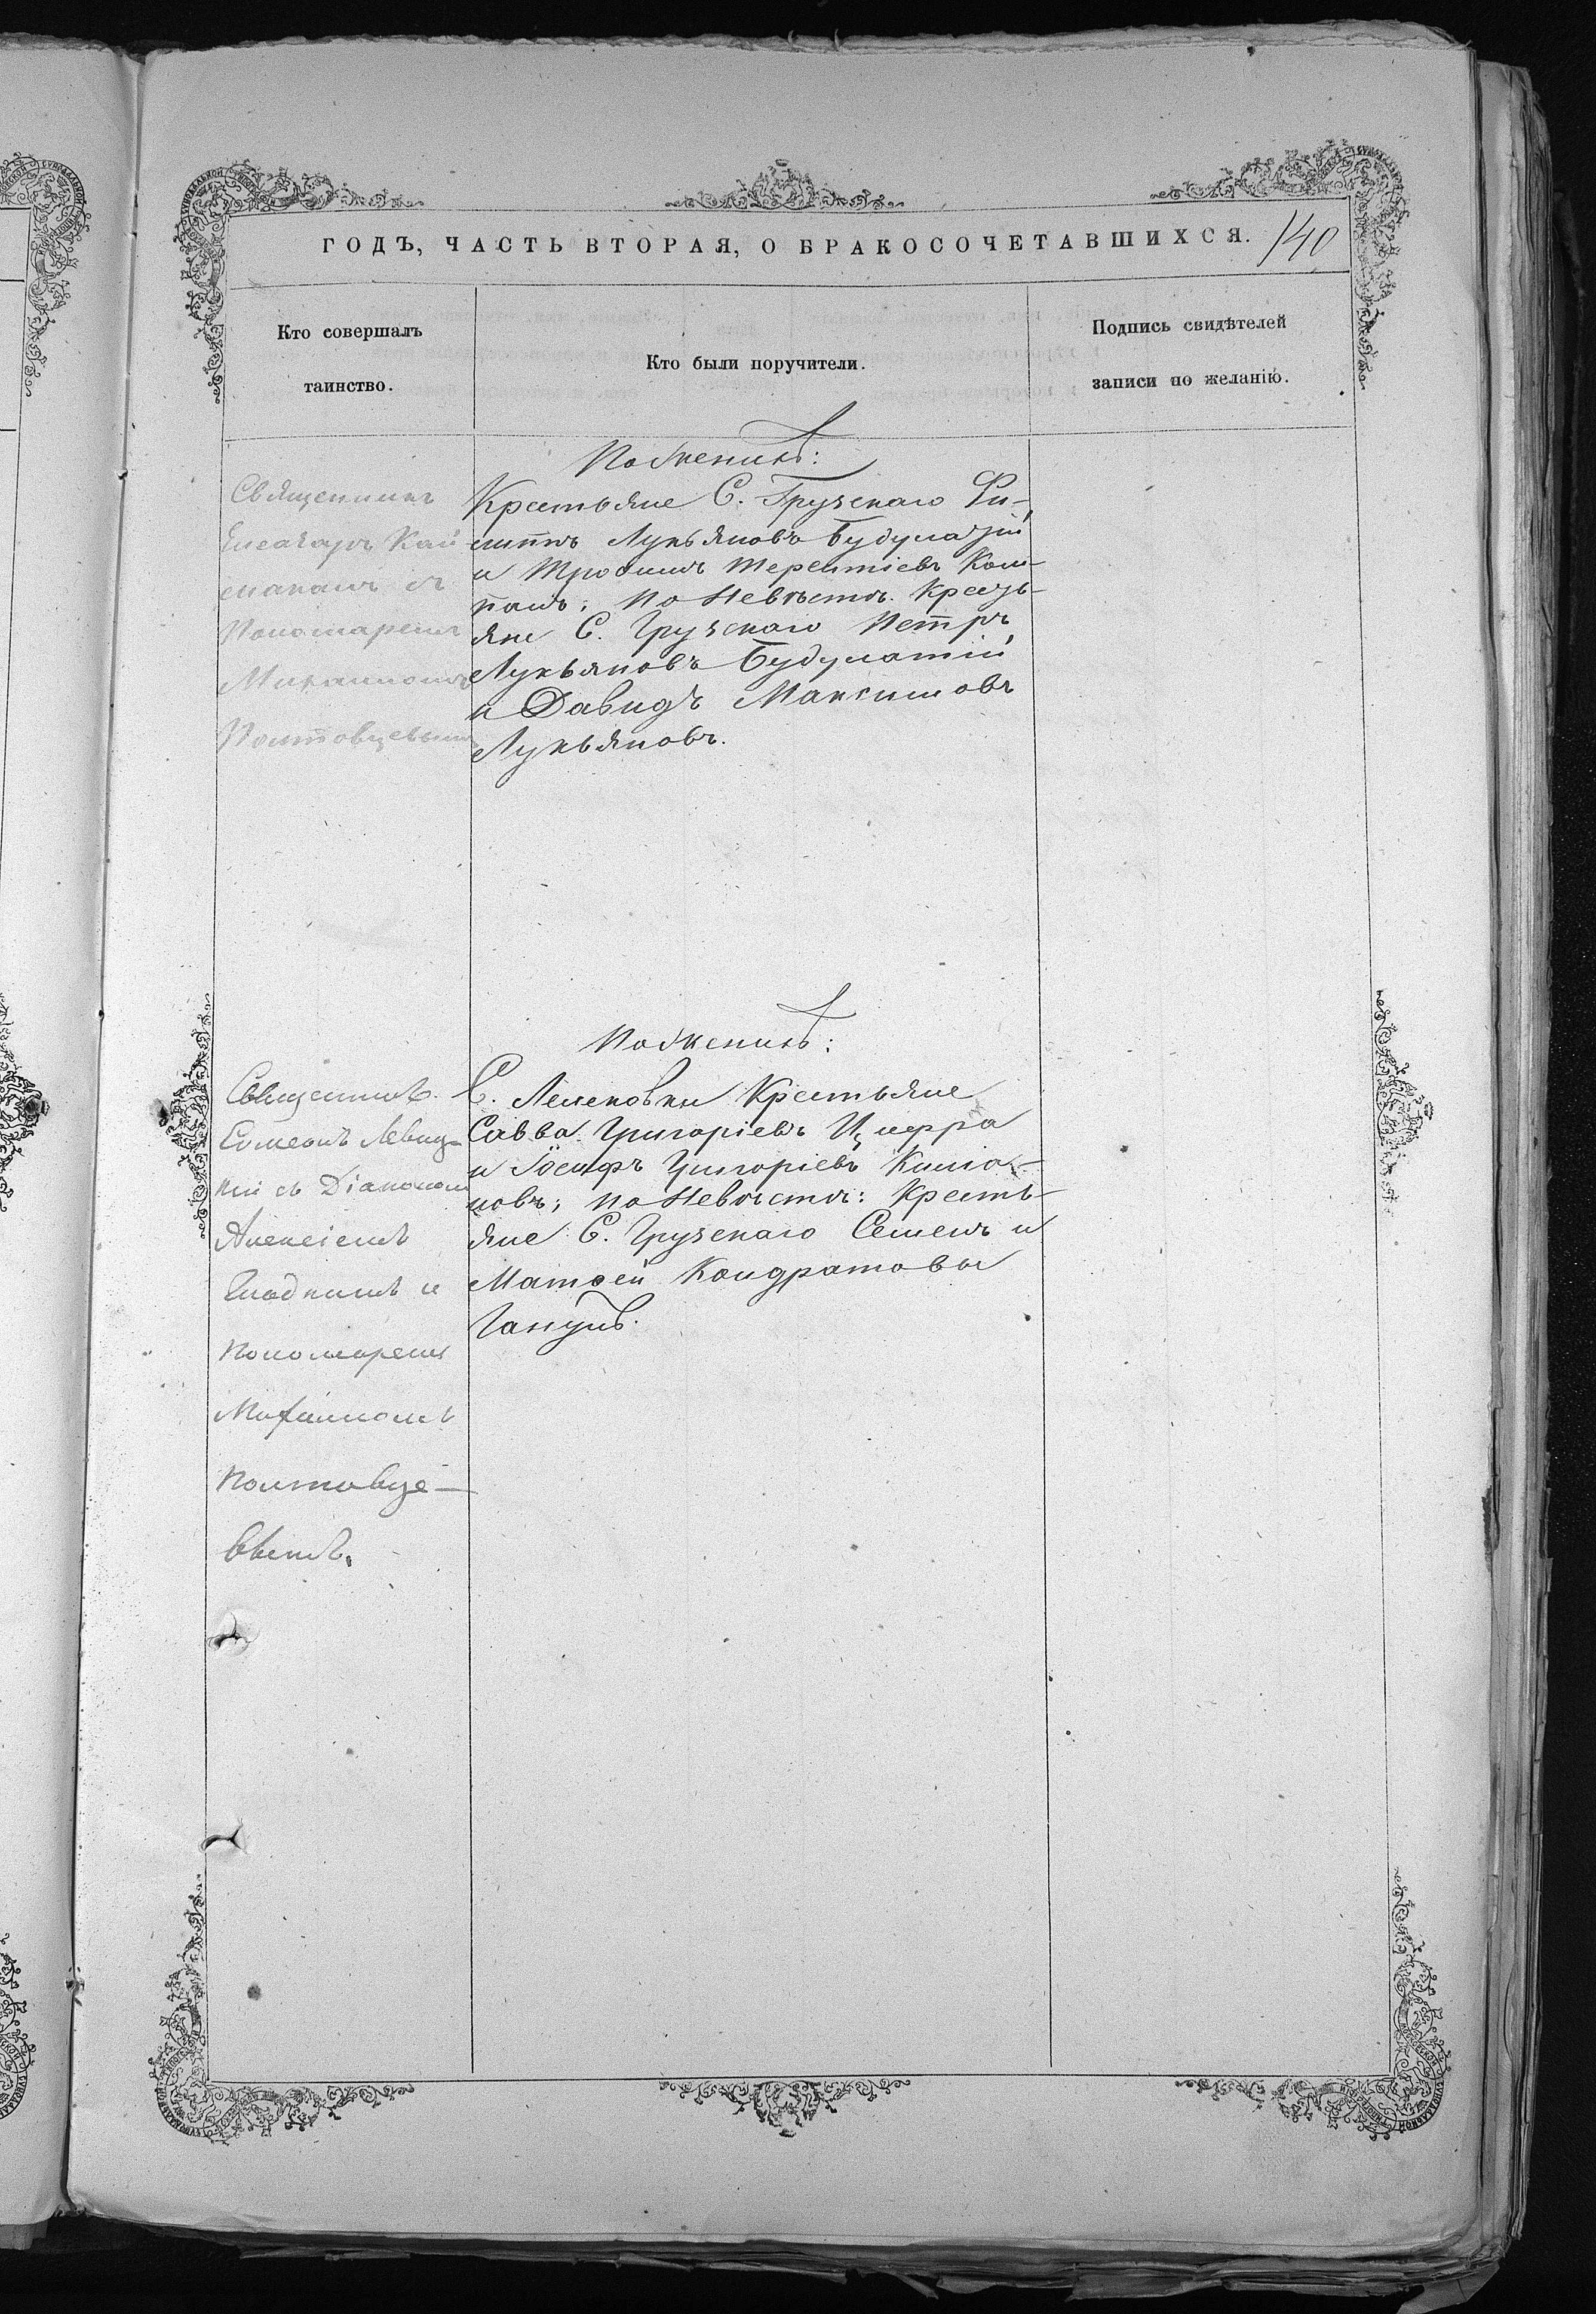 ГОДЪ, ЧАСТЬ ВТОРАЯ, О БРАКОСОЧЕТАВШИХСЯ. 140
Кто совершалъ
таинство.
Кто были поручители.
Подпись свидѣтелей
записи по желанію.
Священникъ
Елеазаръ Кай
съ
Пономаремъ
Михаиломъ
Полтовцевымъ
По Женихѣ:
Крестьяне С. Грузскаго Фи-
липпъ Лукьяновъ
и Трофимъ Терентіевъ Кол-
пакъ; По Невѣстѣ. Кресть-
яне С. Грузскаго Петръ
Лукьяновъ
и Давидъ Максимовъ
Лукьяновъ.
Священникъ.
Симеонъ Левиц-
кій съ Діакономъ
Алексіемъ
Гладкимъ и
Пономаремъ
Михаиломъ
Полтовце-
вымъ.
По Женихѣ:
С. Лелековки Крестьяне
Савва Григоріевъ Цыфра
и Іосифъ Григоріевъ
По Невѣстѣ: Кресть-
яне С. Грузскаго Семенъ и
Матѳей Кондратовы